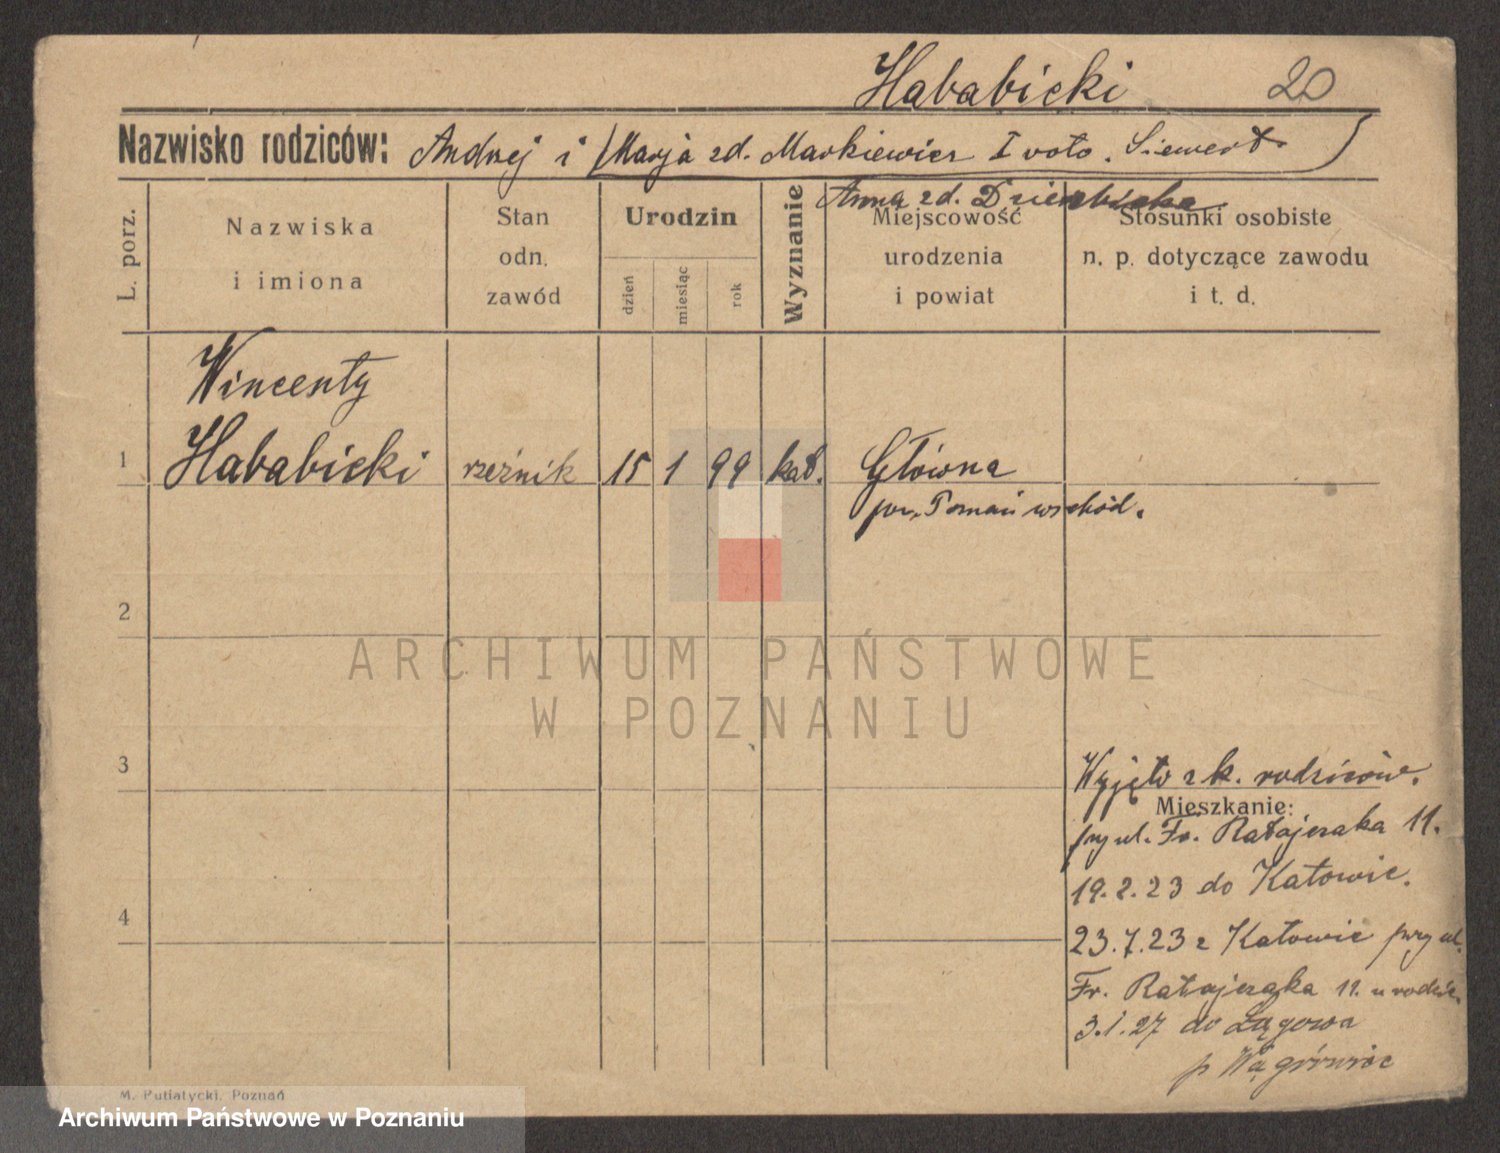 Hababicki 20
Nazwisko rodziców: Andrzej i (Marja zd. Markiewicz I voto. Siewert)
Anna zd.
L. porz.
Nazwiska
i imiona
Stan
odn.
zawód
Urodzin
dzień
miesiąc
rok
Wyznanie
Miejscowość
urodzenia
i powiat
Stosunki osobiste
n. p. dotyczące zawodu
i t. d.
Wincenty
1 Hababicki rzeźnik 15 1 99 kat. Główna
pow. Poznań wschód.
2
ARCHIWUM PAŃSTWOWE
W POZNANIU
3
Wyjęto z k. rodziców.
Mieszkanie:
przy ul. Fr. Ratajczaka 11.
19.2.23 do Katowic.
4
23.7.23 z Katowic przy ul.
Fr. Ratajczaka 11. u rodzic.
3.1.27 do Łągowa
p Wągrówiec
M. Putiatycki, Poznań
Archiwum Państwowe w Poznaniu